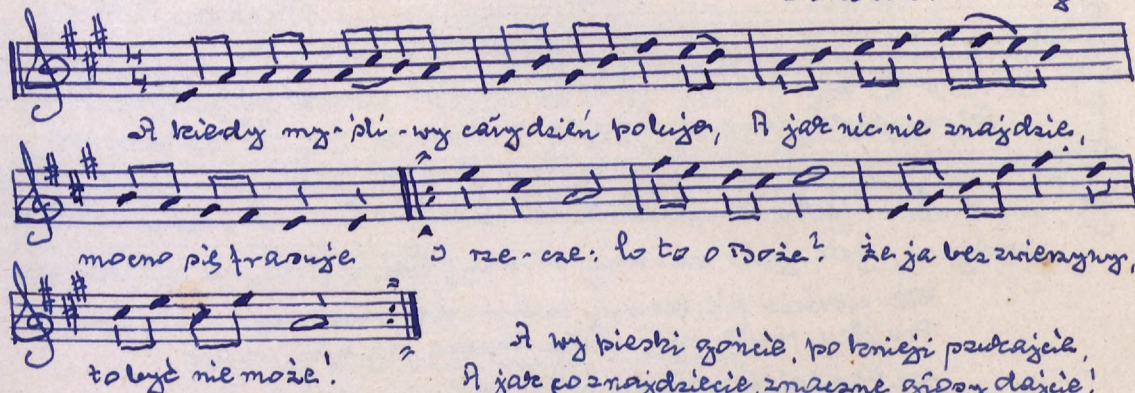 A kiedy my-śli-wy cały dzień poluje, A jak nic nie znajdzie,
mocno się frasuje I rze-cze: Co to o Boże? że ja bez zwierzyny,
to być nie może!
A wy pieski gońcie, po knieji szukajcie,
A jak co znajdziecie, znaczne głosy dajcie!